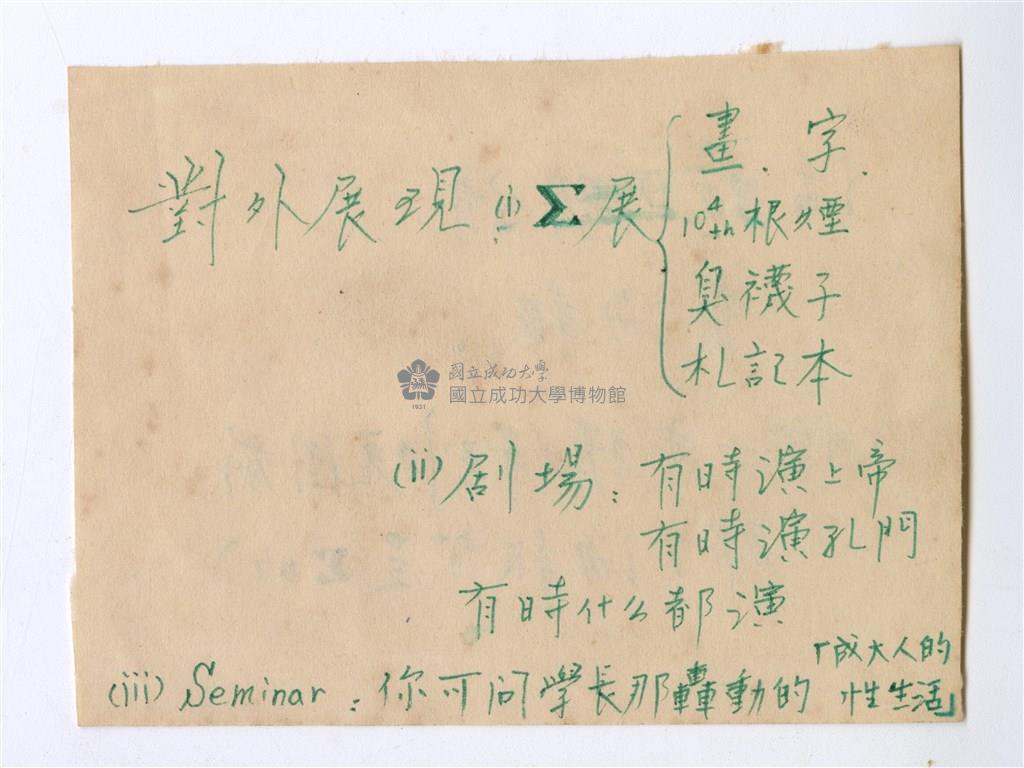 對外展現:(i) Σ展
畫、字、
10⁴th根煙
臭襪子
札記本
國立成功大學
國立成功大學博物館
1931
(ii) 剧場：有時演上帝
有時演孔門
有時什么都演
(iii) Seminar：你可问學長那轟動的「成大人的
性生活」